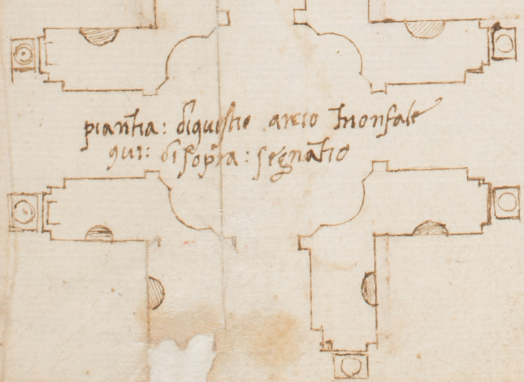 piantia: di questio arcio trionfale
qui: di sopra: segnatio